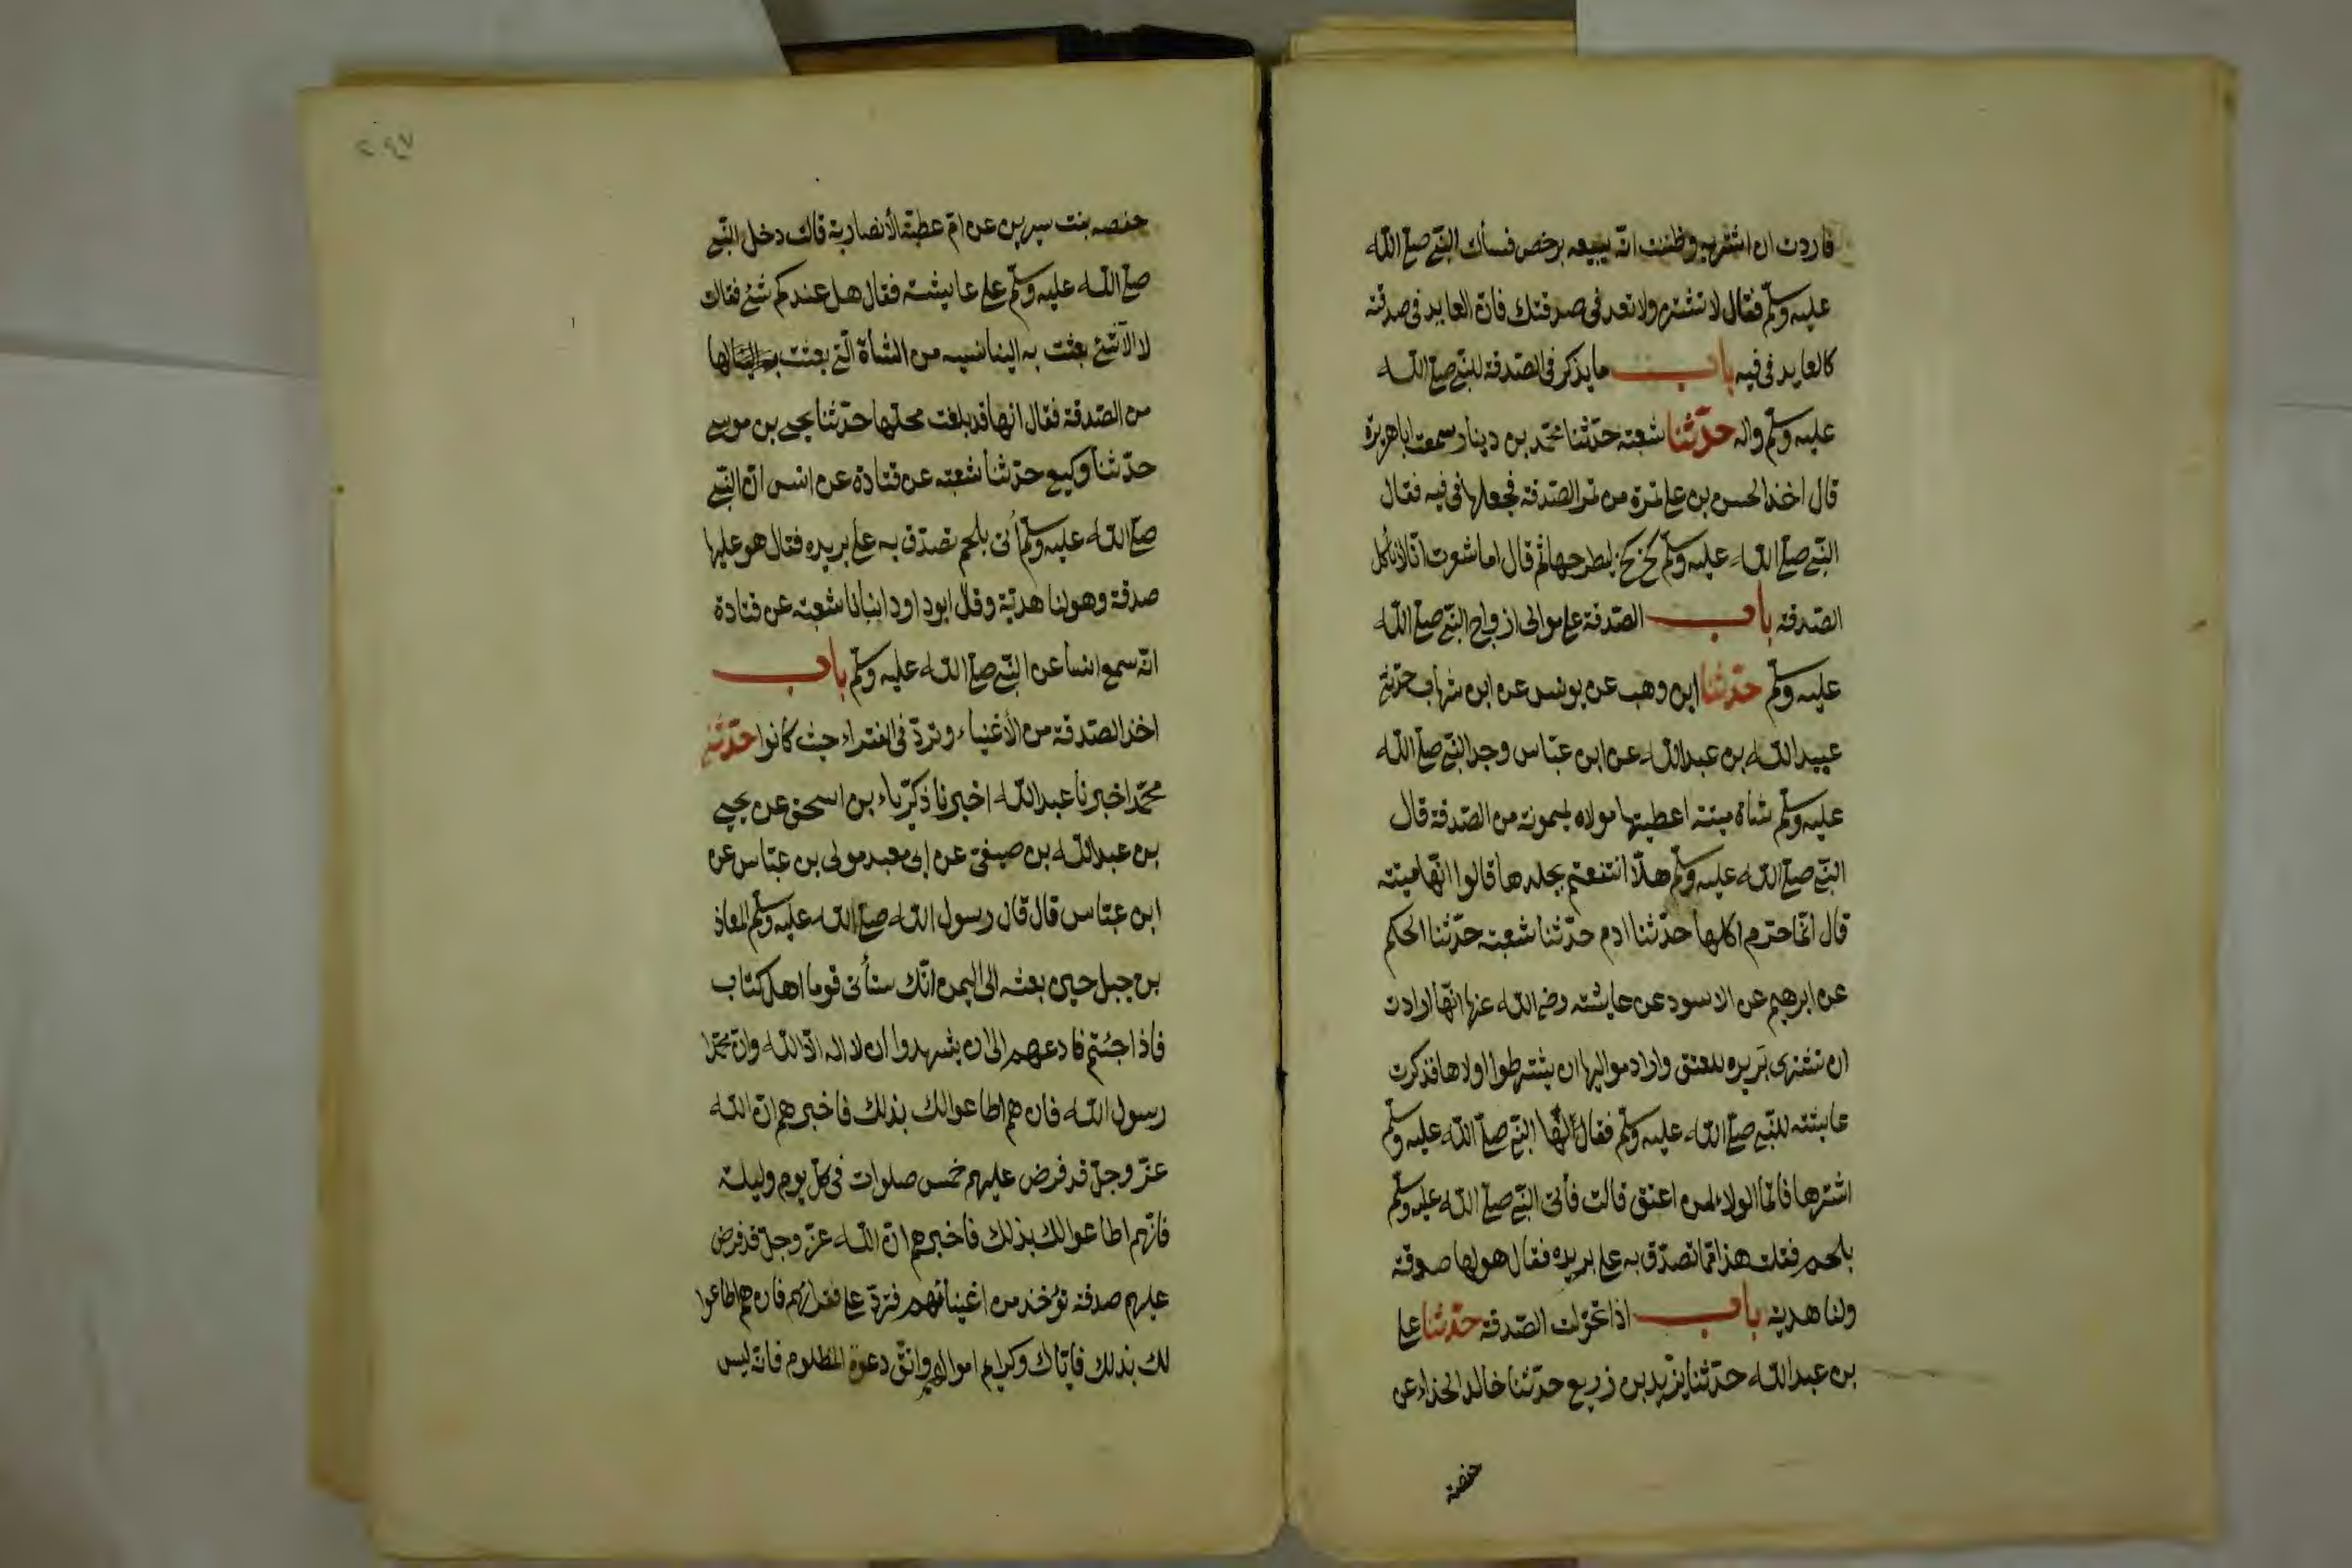 فاردت ان اشتريه وظننت انه يبيعه برخص فسألت النبي صلى الله
عليه وسلم فقال لا تشتره ولا تعد في صدقتك فان العايد في صدقته
كالعايد في فيه باب ما يذكر في الصدقة للنبي صلى الله
عليه وسلم واله حدثنا شعبة حدثنا محمد بن دينار سمعت ابا هريرة
قال اخذ الحسن بن علي تمرة من تمر الصدقة فجعلها في فيه فقال
النبي صلى الله عليه وسلم كخ كخ ليطرحها ثم قال اما شعرت انا لا نأكل
الصدقة باب الصدقة على موالي ازواج النبي صلى الله
عليه وسلم حدثنا ابن وهب عن يونس عن ابن شهاب حدثني
عبيد الله بن عبد الله عن ابن عباس وجد النبي صلى الله
عليه وسلم شاة ميتة اعطيتها مولاه لميمونة من الصدقة قال
النبي صلى الله عليه وسلم هلا انتفعتم بجلدها قالوا انها ميته
قال انما حرم اكلها حدثنا ادم حدثنا شعبة حدثنا الحكم
عن ابرهيم عن الاسود عن عايشة رضي الله عنها انها ارادت
ان تشترى بريره للعتق واراد مواليها ان يشترطوا اولاها فذكرت
عايشه للنبي صلى الله عليه وسلم فقال لها النبي صلى الله عليه وسلم
اشترها فانما الولاء لمن اعتق قالت فأتى النبي صلى الله عليه وسلم
بلحم فقلت هذا مما تصدق به على بريره فقال هو لها صدقة
ولنا هدية باب اذا تحولت الصدقة حدثنا علي
بن عبد الله حدثنا يزيد بن زريع حدثنا خالد الحذاء عن
حفصة
حفصه بنت سيرين عن ام عطية الأنصارية قالت دخل النبي
صلى الله عليه وسلم على عايشة فقال هل عندكم شئ فقالت
لا الا شئ بعثت به الينا نسيبه من الشأة التي بعثت لها
من الصدقة فقال انها قد بلغت محلها حدثنا يحيى بن موسى
حدثنا وكيع حدثنا شعبه عن قتادة عن انس ان النبي
صلى الله عليه وسلم أتى بلحم تصدق به على بريره فقال هو عليها
صدقة وهو لنا هدية وقال ابو داود انبانا شعبة عن قتادة
انه سمع انسا عن النبي صلى الله عليه وسلم باب
اخذ الصدقة من الأغنياء وترد في الفقراء حيث كانوا حدثنا
محمد اخبرنا عبد الله اخبرنا ذكرياء بن اسحق عن يحيى
بن عبد الله بن صيفي عن ابي معبد مولى بن عباس عن
ابن عباس قال قال رسول الله صلى الله عليه وسلم لمعاذ
بن جبل حين بعثه الى اليمن انك ستأتى قوما اهل كتاب
فاذا جئتم فادعهم الى ان يشهدوا ان لا اله الا الله وان محمدا
رسول الله فان هم اطاعوا لك بذلك فاخبرهم ان الله
عز وجل قد فرض عليهم خمس صلوات في كل يوم وليلة
فانهم اطاعوا لك بذلك فاخبرهم ان الله عز وجل قد فرض
عليهم صدقة تؤخذ من اغنيائهم فترد على فقرائهم فان هم اطاعوا
لك بذلك فاياك وكرايم اموالهم واتق دعوة المظلوم فانه ليس